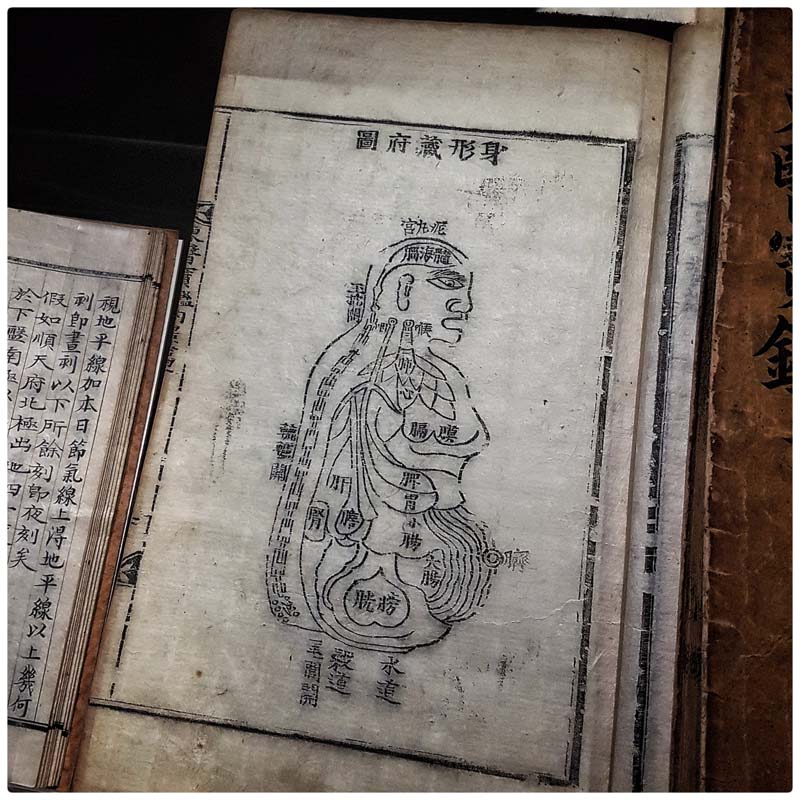 身形藏府圖
泥丸宮
髓海腦
玉枕關
咽
喉
肺
心
膈膜
轆轤關
肝
脾
胃
小
腸
腎
膽
大腸
臍
膀胱
尾閭關
穀道
水道
視地平線加本日節氣線上得地平線以上幾何
刻即晝刻以下所餘刻即夜刻矣
假如順天府北極出地四
醫寶鑑